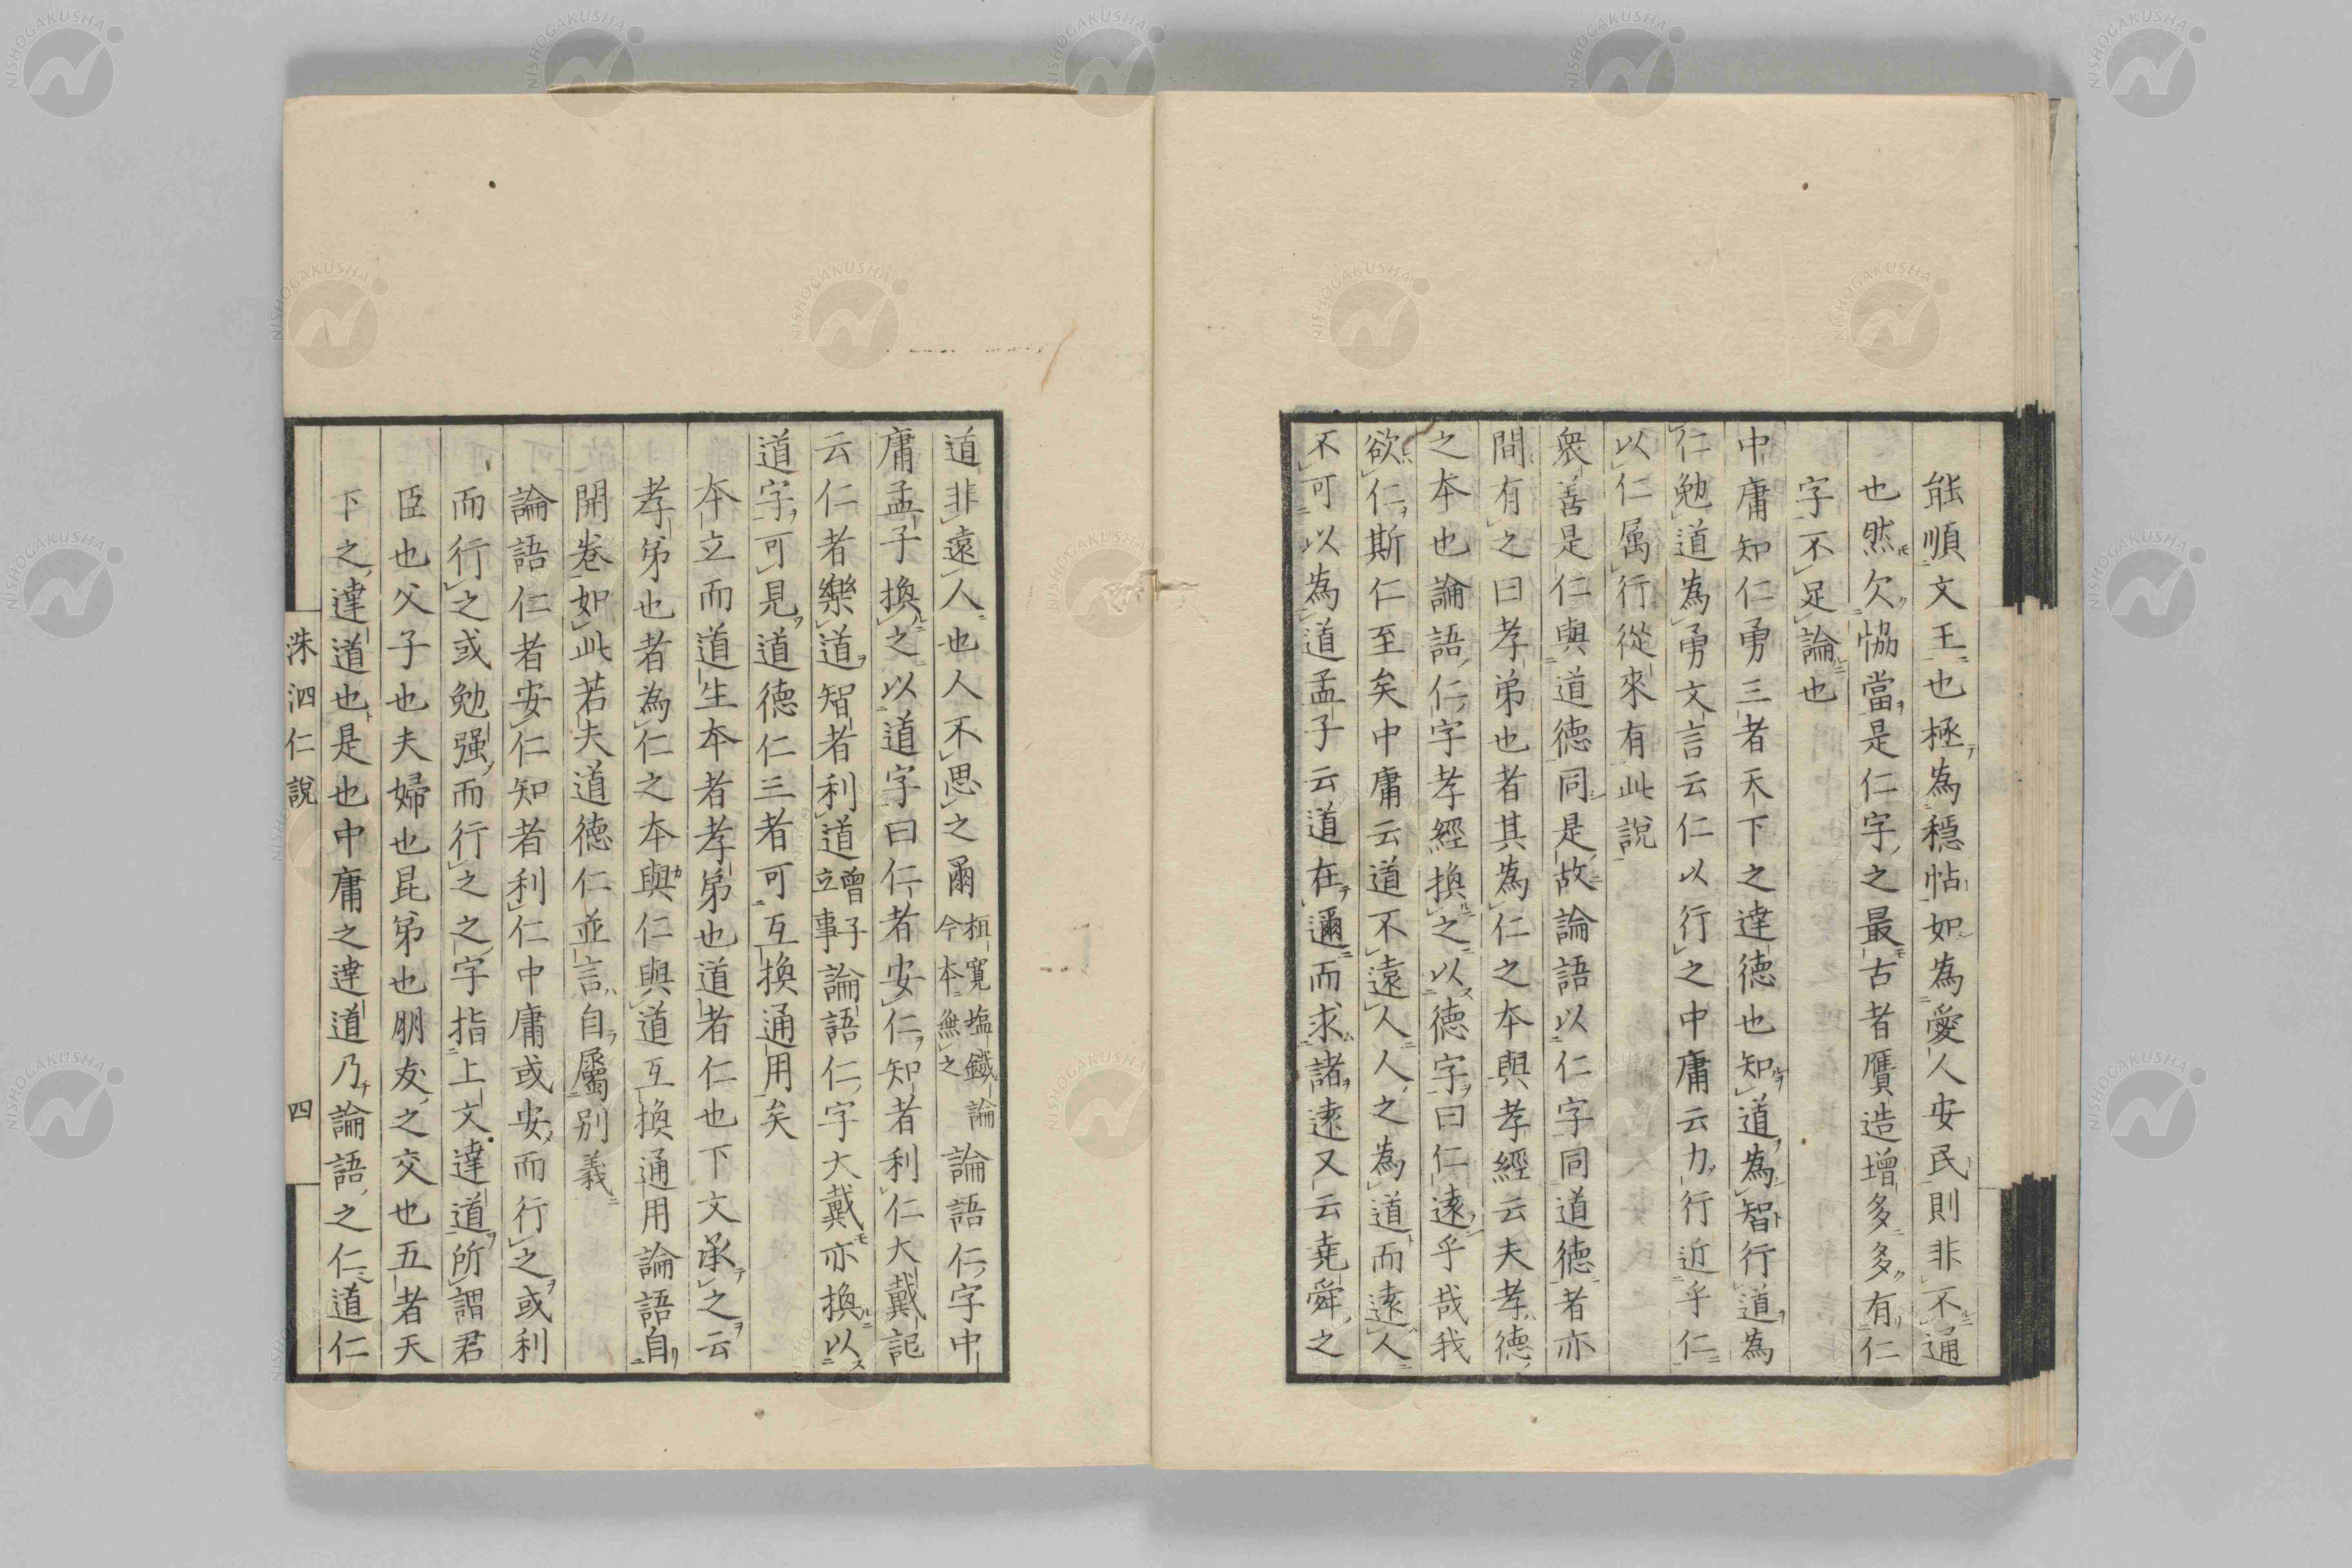 能順文王也極為穏帖如為愛人安民則非不通
也然欠恊當是仁字之最古者贋造增多多有仁
字不足論也
中庸知仁勇三者天下之達徳也知道為智行道為
仁勉道為勇文言云仁以行之中庸云力行近乎仁
以仁属行從來有此說
衆善是仁與道徳同是故論語以仁字同道徳者亦
間有之曰孝弟也者其為仁之本與孝經云夫孝徳
之本也論語仁字孝經換之以徳字曰仁遠乎哉我
欲仁斯仁至矣中庸云道不遠人人之為道而遠人
不可以為道孟子云道在邇而求諸遠又云堯舜之
道非遠人也人不思之爾桓寬塩鐵論今本無之論語仁字中
庸孟子換之以道字曰仁者安仁知者利仁大戴記
云仁者樂道智者利道曾子立事論語仁字大戴亦換以
道字可見道德仁三者可互換通用矣
本立而道生本者孝弟也道者仁也下文承之云
孝弟也者為仁之本與仁與道互換通用論語自
開卷如此若夫道徳仁並言自屬別義
論語仁者安仁知者利仁中庸或安而行之或利
而行之或勉强而行之之字指上文達道所謂君
臣也父子也夫婦也昆弟也朋友之交也五者天
下之達道也是也中庸之達道乃論語之仁道仁
洙泗仁說
四
NISHOGAKUSHA